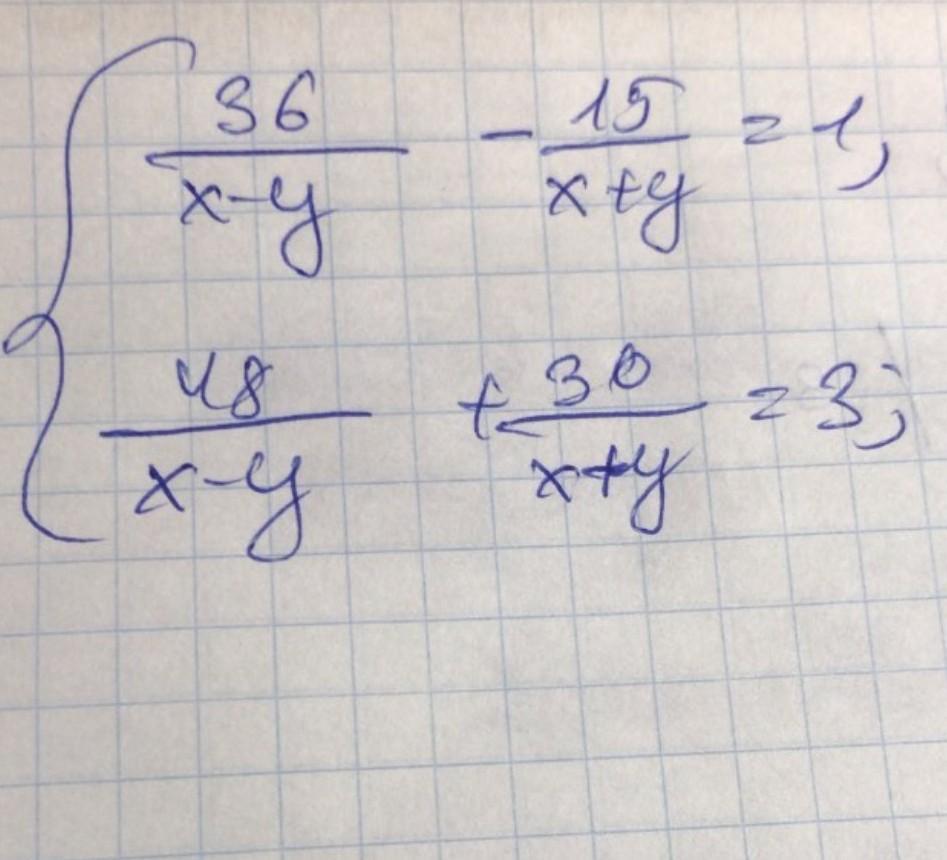 36/(x-y) - 15/(x+y) = 1,
48/(x-y) + 30/(x+y) = 3;